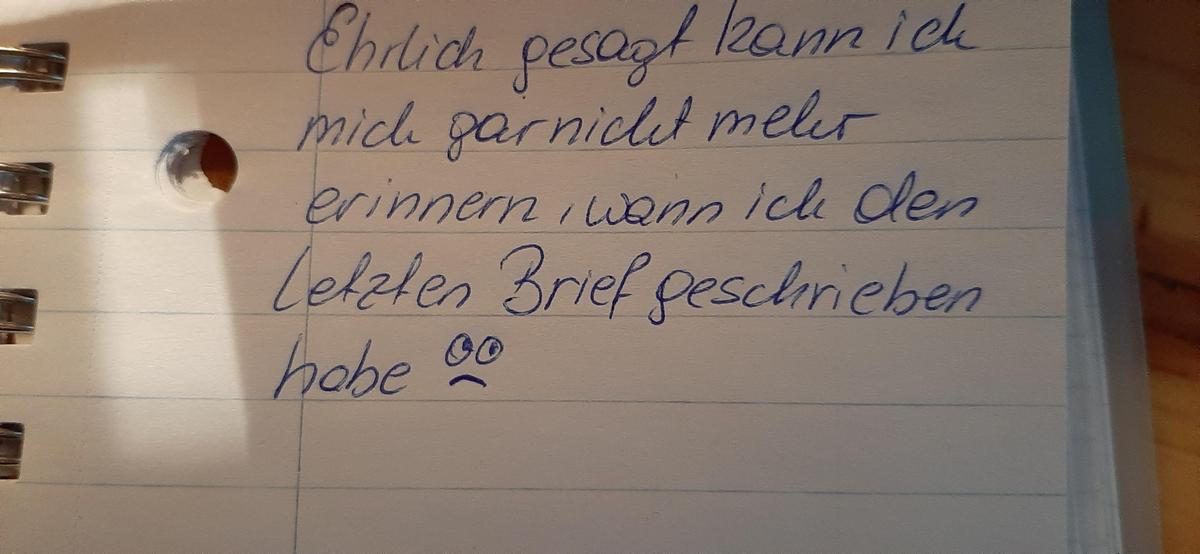 Ehrlich gesagt kann ich
mich garnicht mehr
erinnern, wann ich den
letzten Brief geschrieben
habe